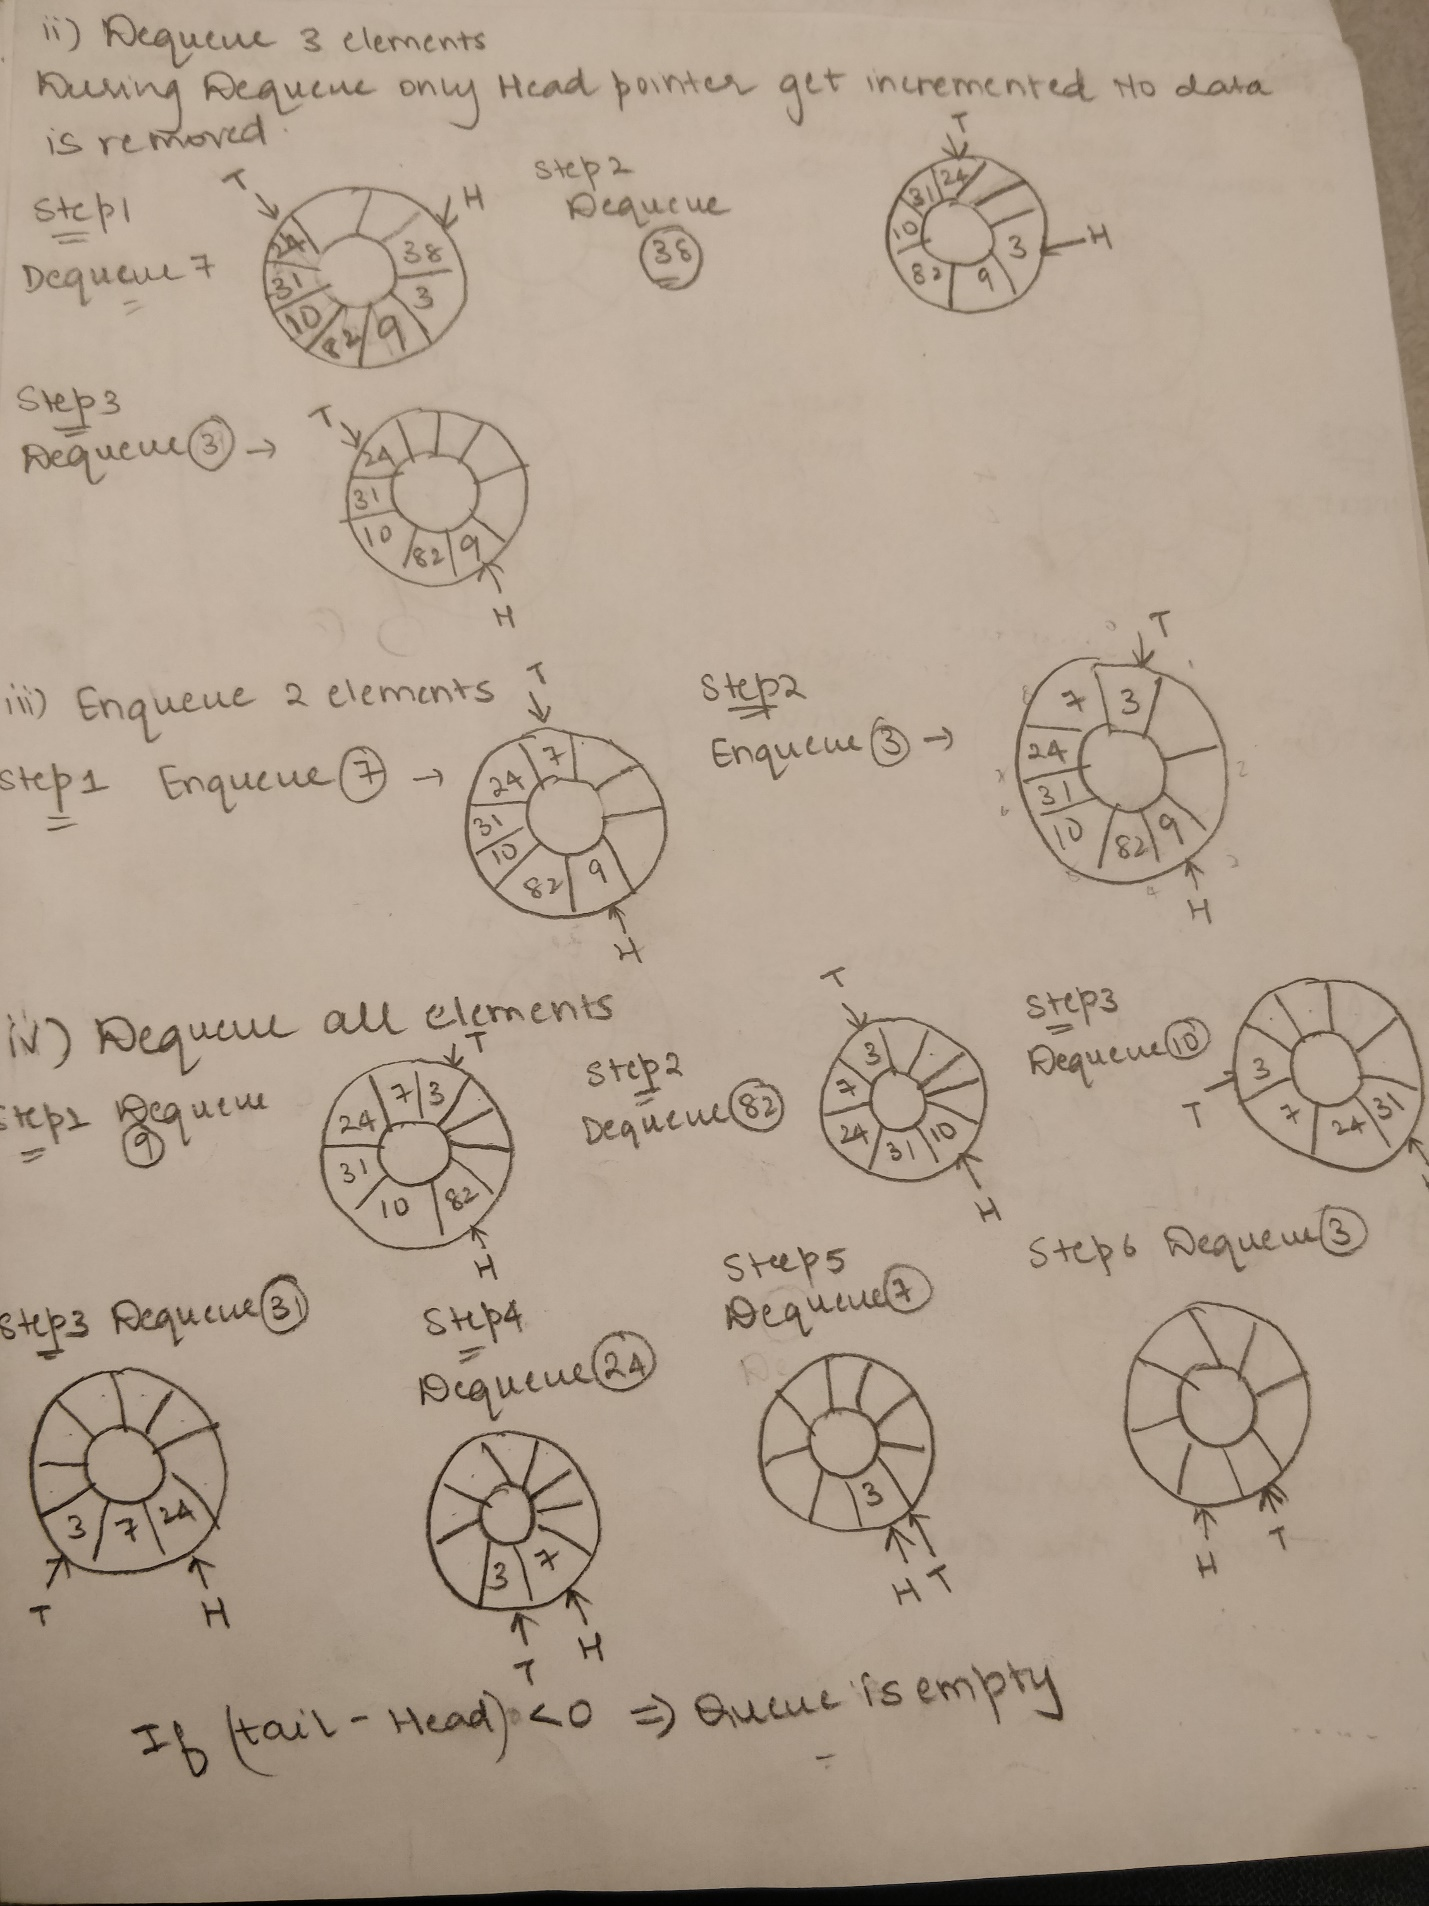 ii) Dequeue 3 elements
During Dequeue only Head pointer get incremented No data
is removed.
Step1
Dequeue 7
T
H
24
31
10
82
9
3
38
Step2
Dequeue
38
T
H
24
31
10
82
9
3
Step3
Dequeue 3 →
T
24
31
10
82
9
H
iii) Enqueue 2 elements
Step1 Enqueue 7 →
T
7
24
31
10
82
9
H
Step2
Enqueue 3 →
T
7
3
24
31
10
82
9
H
iv) Dequeue all elements
Step1 Dequeue
9
T
7
3
24
31
10
82
H
Step2
Dequeue 82
T
3
7
24
31
10
H
Step3
Dequeue 10
T
3
7
24
31
Step3 Dequeue 31
3
7
24
T
H
Step4
Dequeue 24
3
7
T
H
Steep5
Dequeue 7
3
H
T
Step6 Dequeue 3
H
T
If (tail - Head) <0 => Queue is empty